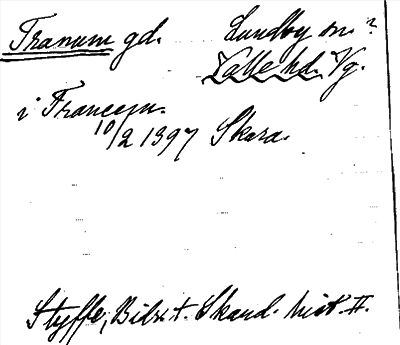 Tranum gd. Lundby sn.?
Valle hd. Vg.
i Francem.
10/2 1397 Skara.
Styffe, Bidr. t. Skand. hist. II.